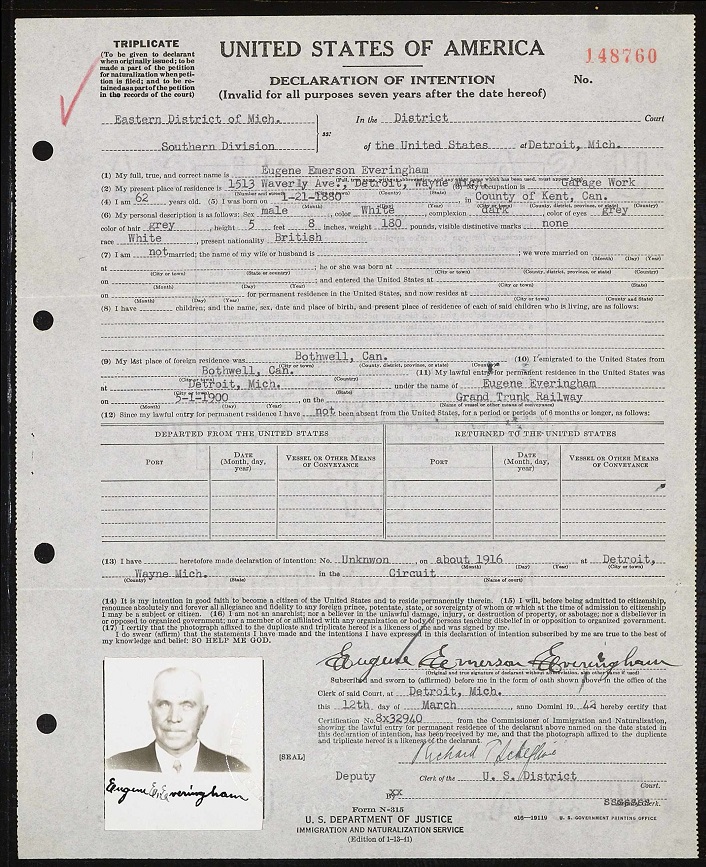 TRIPLICATE
(To be given to declarant
when originally issued; to be
made a part of the petition
for naturalization when peti-
tion is filed; and to be re-
tained as a part of the petition
in the records of the court)
UNITED STATES OF AMERICA
148760
DECLARATION OF INTENTION
No.
(Invalid for all purposes seven years after the date hereof)
Eastern District of Mich. In the District Court
ss:
Southern Division of the United States at Detroit, Mich.
(1) My full, true, and correct name is Eugene Emerson Everingham
(2) My present place of residence is 1513 Waverly Ave., Detroit, Wayne Mich. (3) My occupation is Garage Work
(4) I am 62 years old. (5) I was born on 1-21-1880 in County of Kent, Can.
(6) My personal description is as follows: Sex male, color White, complexion dark, color of eyes grey
color of hair grey, height 5 feet 8 inches, weight 180 pounds, visible distinctive marks none
race White, present nationality British
(7) I am not married; the name of my wife or husband is ; we were married on
(Month) (Day) (Year)
at ; he or she was born at
(City or town) (State or country) (City or town) (County, district, province, or state) (Country)
on ; and entered the United States at
(Month) (Day) (Year) (City or town) (State)
on for permanent residence in the United States, and now resides at
(Month) (Day) (Year) (City or town) (County and State)
(8) I have children; and the name, sex, date and place of birth, and present place of residence of each of said children who is living, are as follows:
(9) My last place of foreign residence was Bothwell, Can. (10) I emigrated to the United States from
(City or town) (County, district, province, or state) (Country)
Bothwell, Can. (11) My lawful entry for permanent residence in the United States was
(City or town) (Country)
at Detroit, Mich. under the name of Eugene Everingham
(City or town) (State)
on 5-1-1900 on the Grand Trunk Railway
(Month) (Day) (Year) (Name of vessel or other means of conveyance)
(12) Since my lawful entry for permanent residence I have not been absent from the United States, for a period or periods of 6 months or longer, as follows:
DEPARTED FROM THE UNITED STATES RETURNED TO THE UNITED STATES
PORT DATE (Month, day, year) VESSEL OR OTHER MEANS OF CONVEYANCE PORT DATE (Month, day, year) VESSEL OR OTHER MEANS OF CONVEYANCE
(13) I have heretofore made declaration of intention: No. Unknwon, on about 1916 at Detroit,
(Month) (Day) (Year) (City or town)
Wayne Mich. in the Circuit
(County) (State) (Name of court)
(14) It is my intention in good faith to become a citizen of the United States and to reside permanently therein. (15) I will, before being admitted to citizenship,
renounce absolutely and forever all allegiance and fidelity to any foreign prince, potentate, state, or sovereignty of whom or which at the time of admission to citizenship
I may be a subject or citizen. (16) I am not an anarchist; nor a believer in the unlawful damage, injury, or destruction of property, or sabotage; nor a disbeliever in
or opposed to organized government; nor a member of or affiliated with any organization or body of persons teaching disbelief in or opposition to organized government.
(17) I certify that the photograph affixed to the duplicate and triplicate hereof is a likeness of me and was signed by me.
I do swear (affirm) that the statements I have made and the intentions I have expressed in this declaration of intention subscribed by me are true to the best of
my knowledge and belief: SO HELP ME GOD.
Eugene Emerson Everingham
(Original and true signature of declarant without abbreviation, also other name if used)
Subscribed and sworn to (affirmed) before me in the form of oath shown above in the office of the
Clerk of said Court, at Detroit, Mich.
this 12th day of March, anno Domini 1942 hereby certify that
Certification No. 8x32940 from the Commissioner of Immigration and Naturalization,
showing the lawful entry for permanent residence of the declarant above named on the date stated in
this declaration of intention, has been received by me, and that the photograph affixed to the duplicate
and triplicate hereof is a likeness of the declarant.
Eugene E. Everingham
[SEAL]
Deputy Clerk of the U. S. District Court.
By xx Clerk.
Form N-315
U. S. DEPARTMENT OF JUSTICE
IMMIGRATION AND NATURALIZATION SERVICE
(Edition of 1-13-41)
16—19119 U. S. GOVERNMENT PRINTING OFFICE